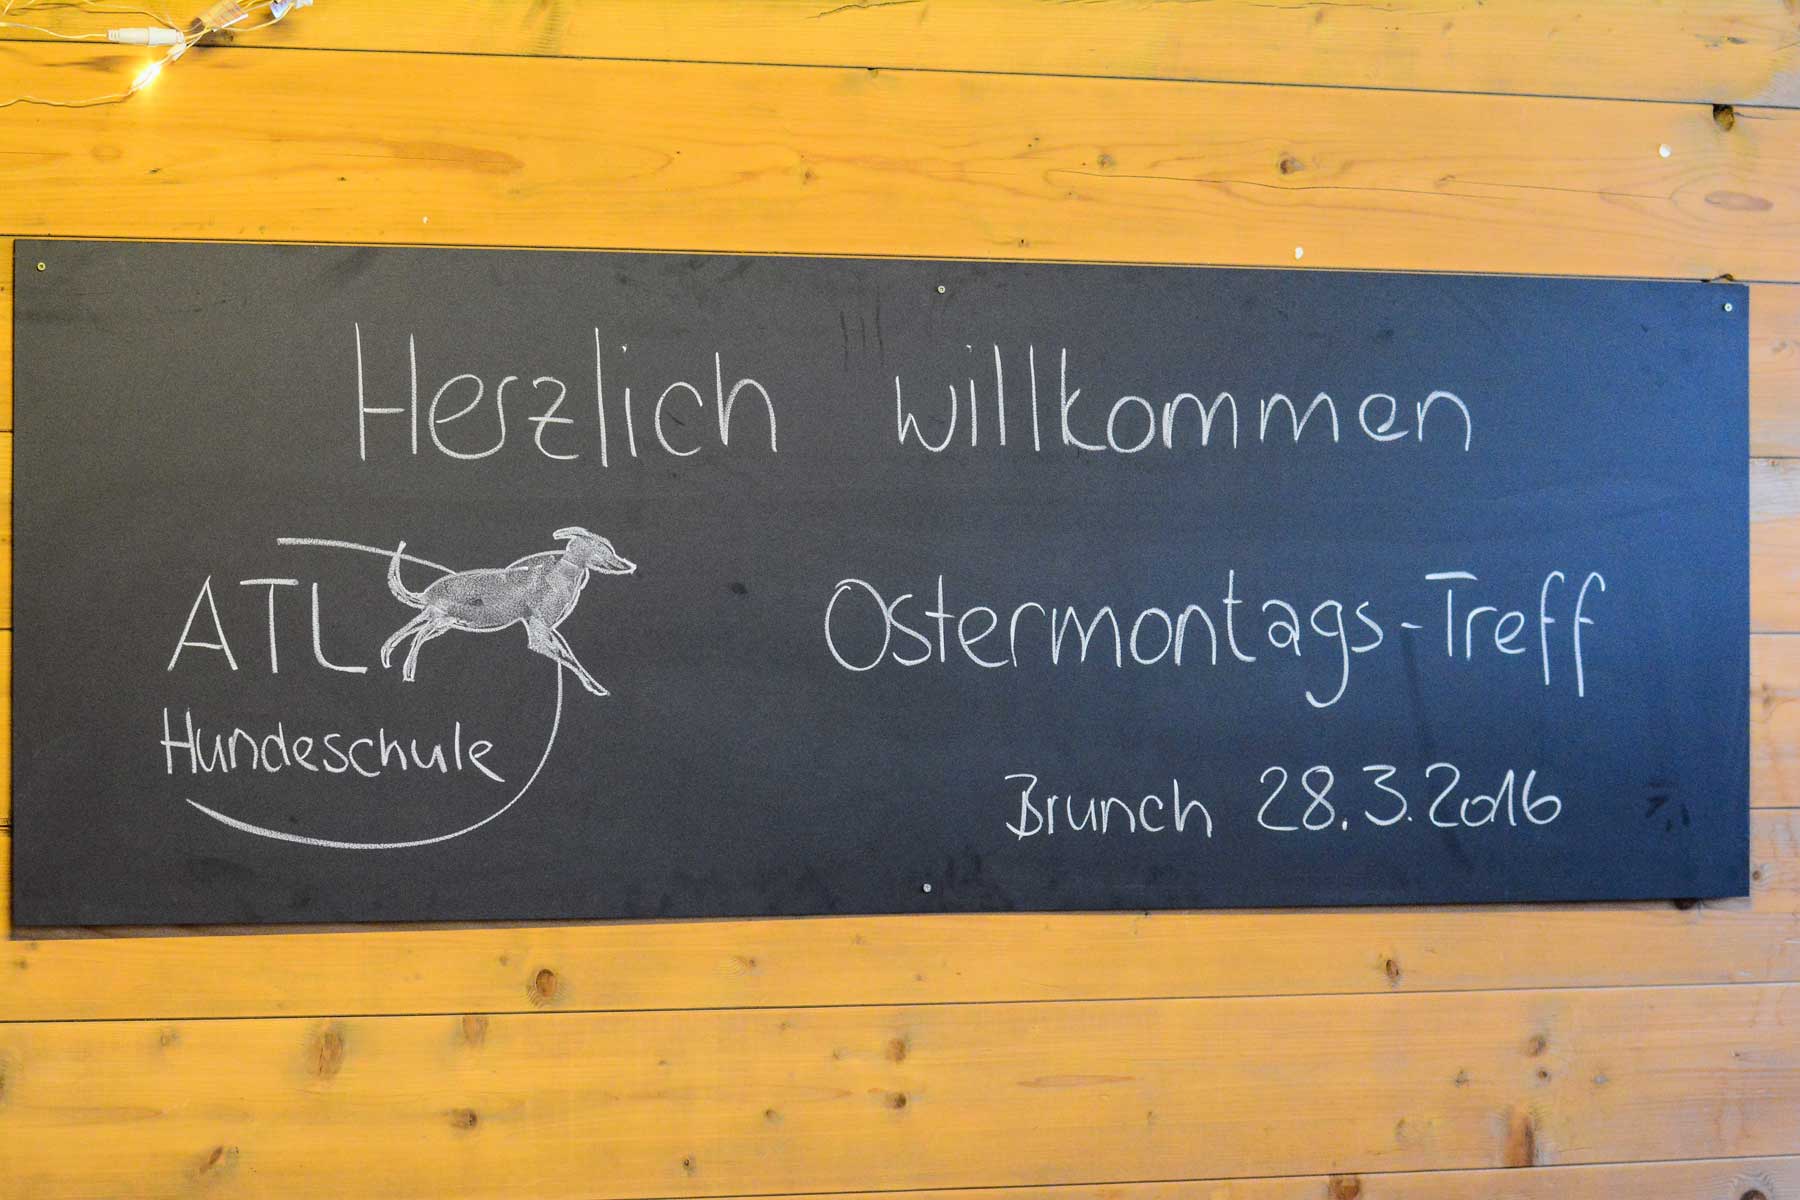 Herzlich willkommen
ATL
Hundeschule
Ostermontags-Treff
Brunch 28.3.2016